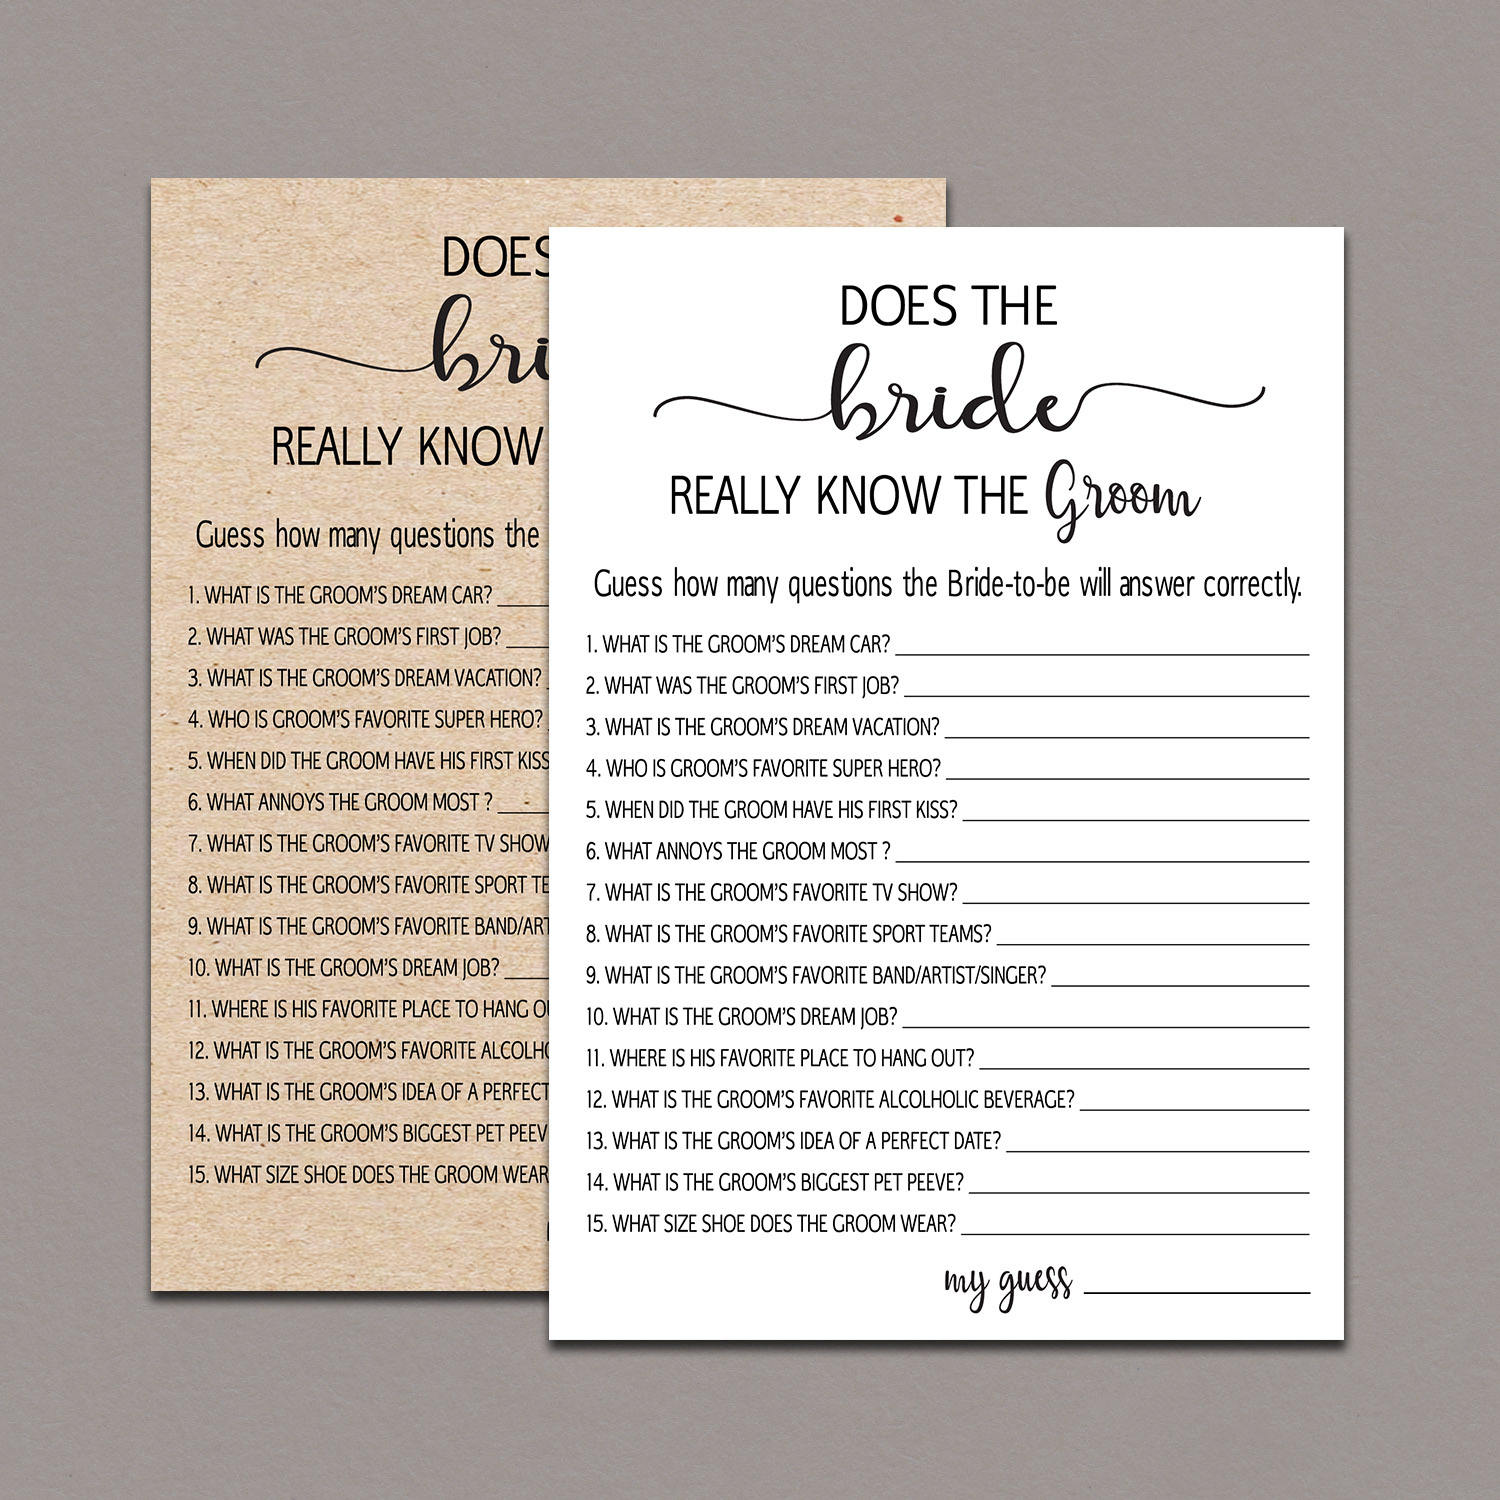 DOES
bri
REALLY KNOW
Guess how many questions the
1. WHAT IS THE GROOM'S DREAM CAR?
2. WHAT WAS THE GROOM'S FIRST JOB?
3. WHAT IS THE GROOM'S DREAM VACATION?
4. WHO IS GROOM'S FAVORITE SUPER HERO?
5. WHEN DID THE GROOM HAVE HIS FIRST KISS
6. WHAT ANNOYS THE GROOM MOST ?
7. WHAT IS THE GROOM'S FAVORITE TV SHOW
8. WHAT IS THE GROOM'S FAVORITE SPORT TE
9. WHAT IS THE GROOM'S FAVORITE BAND/ART
10. WHAT IS THE GROOM'S DREAM JOB?
11. WHERE IS HIS FAVORITE PLACE TO HANG OU
12. WHAT IS THE GROOM'S FAVORITE ALCOLHO
13. WHAT IS THE GROOM'S IDEA OF A PERFECT
14. WHAT IS THE GROOM'S BIGGEST PET PEEV
15. WHAT SIZE SHOE DOES THE GROOM WEAR
DOES THE
bride
REALLY KNOW THE Groom
Guess how many questions the Bride-to-be will answer correctly.
1. WHAT IS THE GROOM'S DREAM CAR?
2. WHAT WAS THE GROOM'S FIRST JOB?
3. WHAT IS THE GROOM'S DREAM VACATION?
4. WHO IS GROOM'S FAVORITE SUPER HERO?
5. WHEN DID THE GROOM HAVE HIS FIRST KISS?
6. WHAT ANNOYS THE GROOM MOST ?
7. WHAT IS THE GROOM'S FAVORITE TV SHOW?
8. WHAT IS THE GROOM'S FAVORITE SPORT TEAMS?
9. WHAT IS THE GROOM'S FAVORITE BAND/ARTIST/SINGER?
10. WHAT IS THE GROOM'S DREAM JOB?
11. WHERE IS HIS FAVORITE PLACE TO HANG OUT?
12. WHAT IS THE GROOM'S FAVORITE ALCOLHOLIC BEVERAGE?
13. WHAT IS THE GROOM'S IDEA OF A PERFECT DATE?
14. WHAT IS THE GROOM'S BIGGEST PET PEEVE?
15. WHAT SIZE SHOE DOES THE GROOM WEAR?
my guess